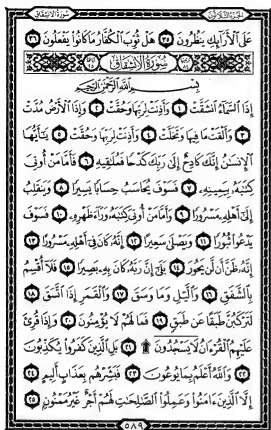 سورة الانشقاق
الجزء الثلاثون
عَلَى ٱلْأَرَآئِكِ يَنظُرُونَ ٣٥ هَلْ ثُوِّبَ ٱلْكُفَّارُ مَا كَانُوا۟ يَفْعَلُونَ ٣٦
سورة الانشقاق
بِسْمِ ٱللَّهِ ٱلرَّحْمَٰنِ ٱلرَّحِيمِ
إِذَا ٱلسَّمَآءُ ٱنشَقَّتْ ١ وَأَذِنَتْ لِرَبِّهَا وَحُقَّتْ ٢ وَإِذَا ٱلْأَرْضُ مُدَّتْ
٣ وَأَلْقَتْ مَا فِيهَا وَتَخَلَّتْ ٤ وَأَذِنَتْ لِرَبِّهَا وَحُقَّتْ ٥ يَٰٓأَيُّهَا
ٱلْإِنسَٰنُ إِنَّكَ كَادِحٌ إِلَىٰ رَبِّكَ كَدْحًا فَمُلَٰقِيهِ ٦ فَأَمَّا مَنْ أُوتِىَ
كِتَٰبَهُۥ بِيَمِينِهِۦ ٧ فَسَوْفَ يُحَاسَبُ حِسَابًا يَسِيرًا ٨ وَيَنقَلِبُ
إِلَىٰٓ أَهْلِهِۦ مَسْرُورًا ٩ وَأَمَّا مَنْ أُوتِىَ كِتَٰبَهُۥ وَرَآءَ ظَهْرِهِۦ ١٠ فَسَوْفَ
يَدْعُوا۟ ثُبُورًا ١١ وَيَصْلَىٰ سَعِيرًا ١٢ إِنَّهُۥ كَانَ فِىٓ أَهْلِهِۦ مَسْرُورًا ١٣
إِنَّهُۥ ظَنَّ أَن لَّن يَحُورَ ١٤ بَلَىٰٓ إِنَّ رَبَّهُۥ كَانَ بِهِۦ بَصِيرًا ١٥ فَلَآ أُقْسِمُ
بِٱلشَّفَقِ ١٦ وَٱلَّيْلِ وَمَا وَسَقَ ١٧ وَٱلْقَمَرِ إِذَا ٱتَّسَقَ ١٨
لَتَرْكَبُنَّ طَبَقًا عَن طَبَقٍ ١٩ فَمَا لَهُمْ لَا يُؤْمِنُونَ ٢٠ وَإِذَا قُرِئَ
عَلَيْهِمُ ٱلْقُرْءَانُ لَا يَسْجُدُونَ ۩ ٢١ بَلِ ٱلَّذِينَ كَفَرُوا۟ يُكَذِّبُونَ
٢٢ وَٱللَّهُ أَعْلَمُ بِمَا يُوعُونَ ٢٣ فَبَشِّرْهُم بِعَذَابٍ أَلِيمٍ ٢٤
إِلَّا ٱلَّذِينَ ءَامَنُوا۟ وَعَمِلُوا۟ ٱلصَّٰلِحَٰتِ لَهُمْ أَجْرٌ غَيْرُ مَمْنُونٍۭ ٢٥
٥٨٩